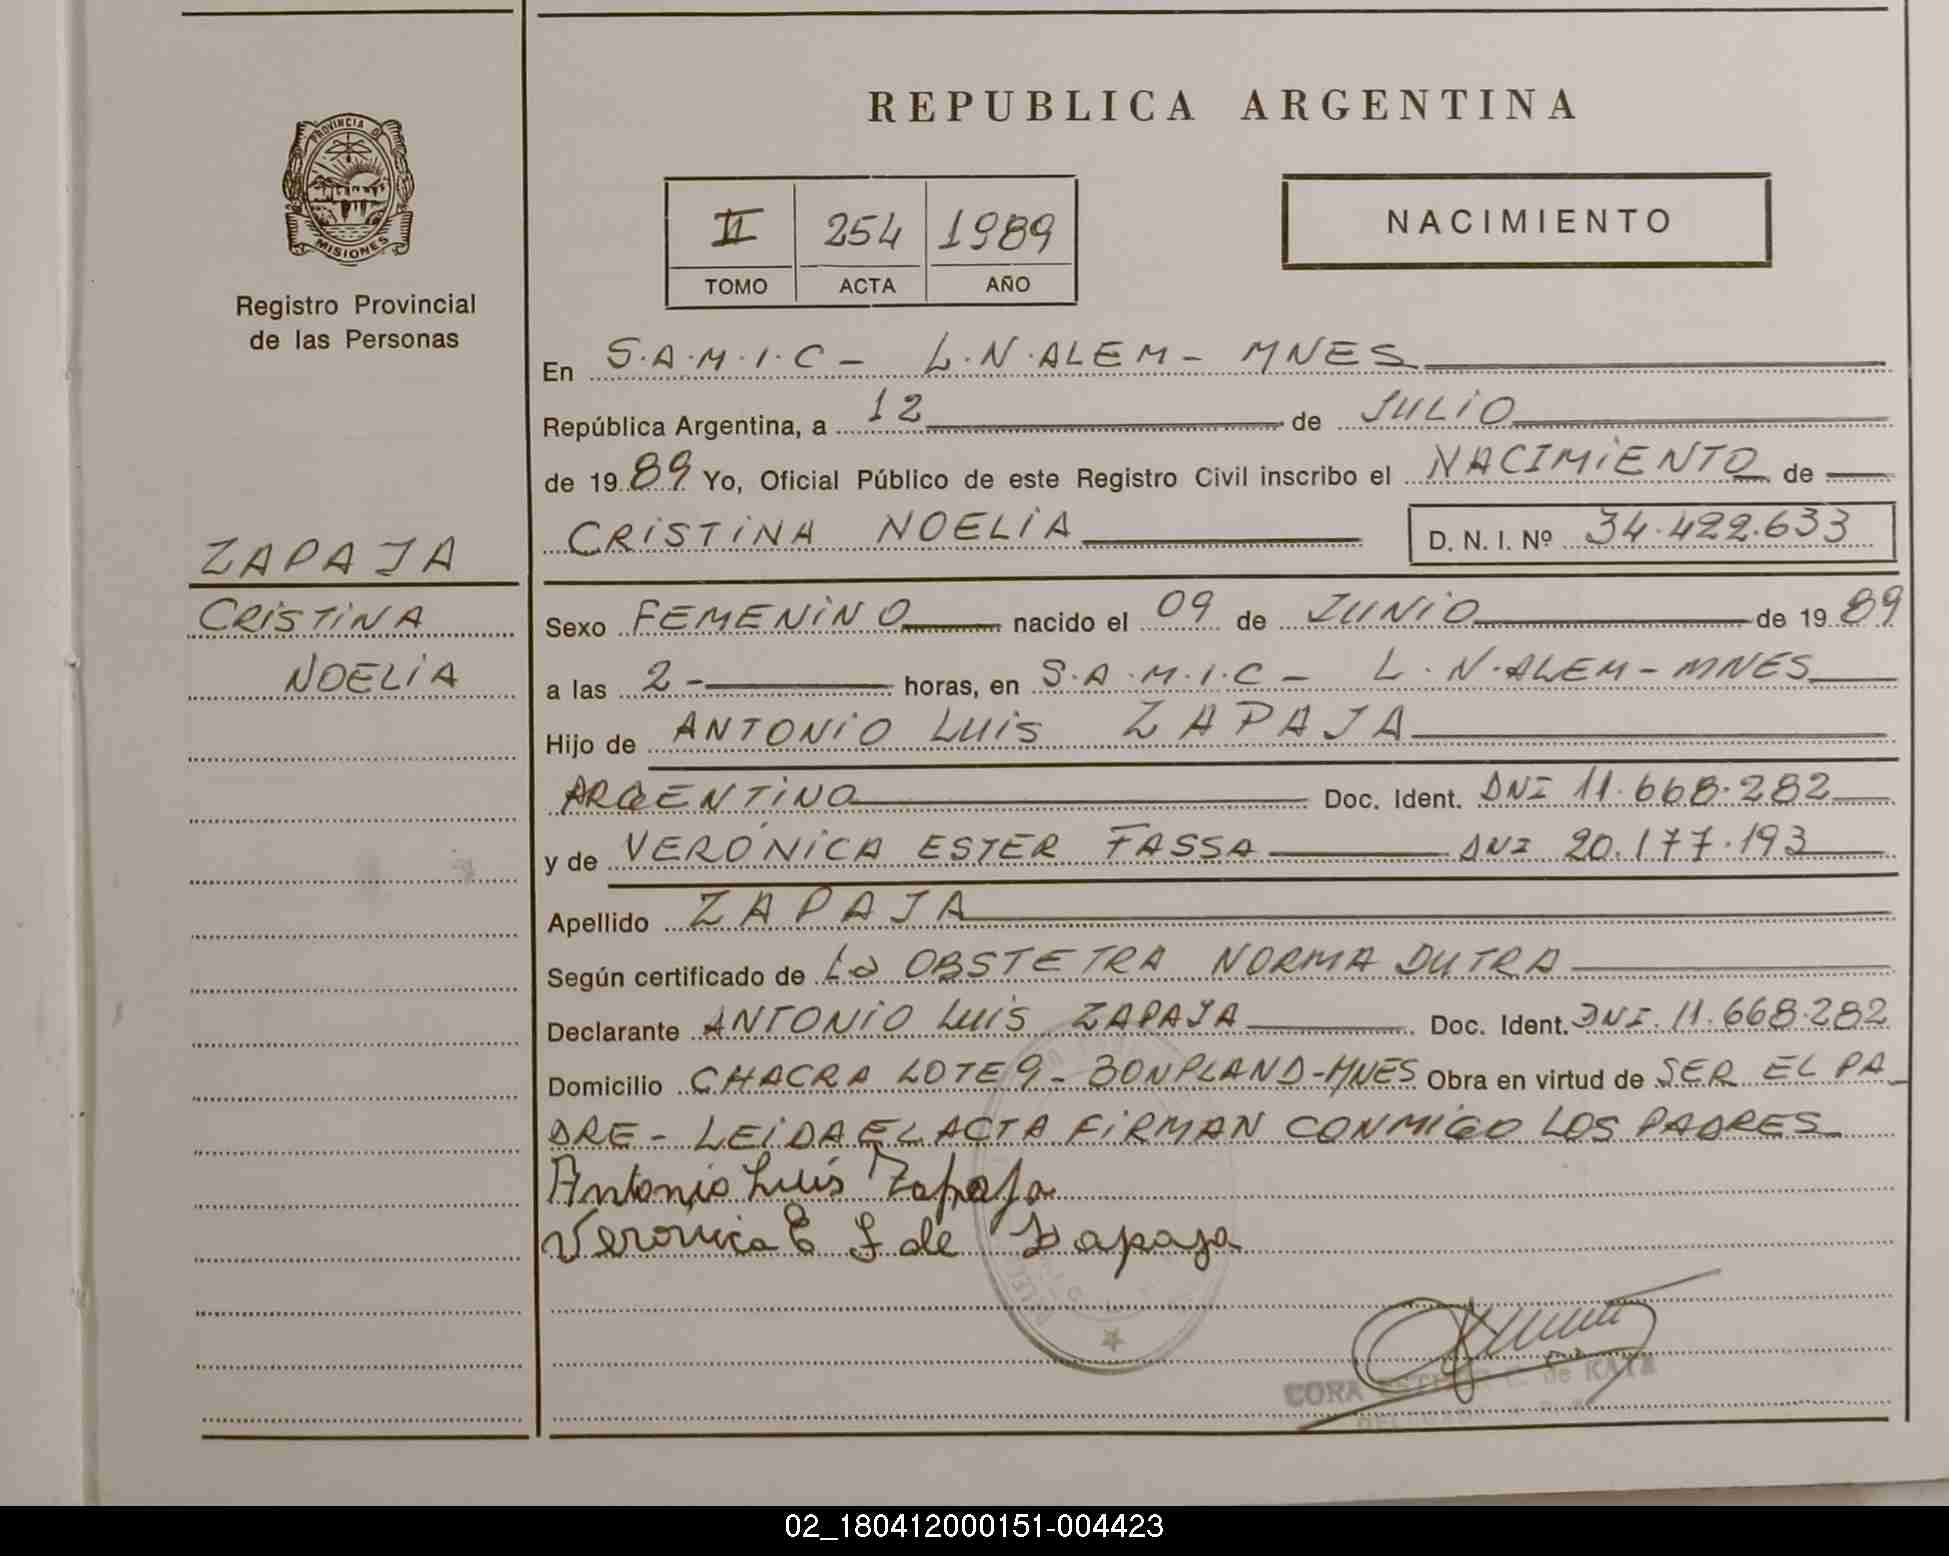 REPUBLICA ARGENTINA
PROVINCIA D
MISIONES
Registro Provincial
de las Personas
II 254 1989
TOMO ACTA AÑO
NACIMIENTO
En S.A.M.I.C - L.N.ALEM - MNES
República Argentina, a 12 de JULIO
de 19 89 Yo, Oficial Público de este Registro Civil inscribo el NACIMIENTO de
CRISTINA NOELIA D. N. I. Nº 34.422.633
ZAPAJA
CRISTINA
NOELIA
Sexo FEMENINO nacido el 09 de JUNIO de 19 89
a las 2 - horas, en S.A.M.I.C - L.N.ALEM - MNES
Hijo de ANTONIO LUIS ZAPAJA
ARGENTINO Doc. Ident. DNI 11.668.282
y de VERÓNICA ESTER FASSA DNI 20.177.193
Apellido ZAPAJA
Según certificado de La OBSTETRA NORMA DUTRA
Declarante ANTONIO LUIS ZAPAJA Doc. Ident. DNI. 11.668.282
Domicilio CHACRA LOTE 9 - BONPLAND - MNES Obra en virtud de SER EL PA
DRE - LEIDA EL ACTA FIRMAN CONMIGO LOS PADRES
Antonio Luis Zapaja
Veronica E F de Zapaja
CORA de KATZ
02_180412000151-004423